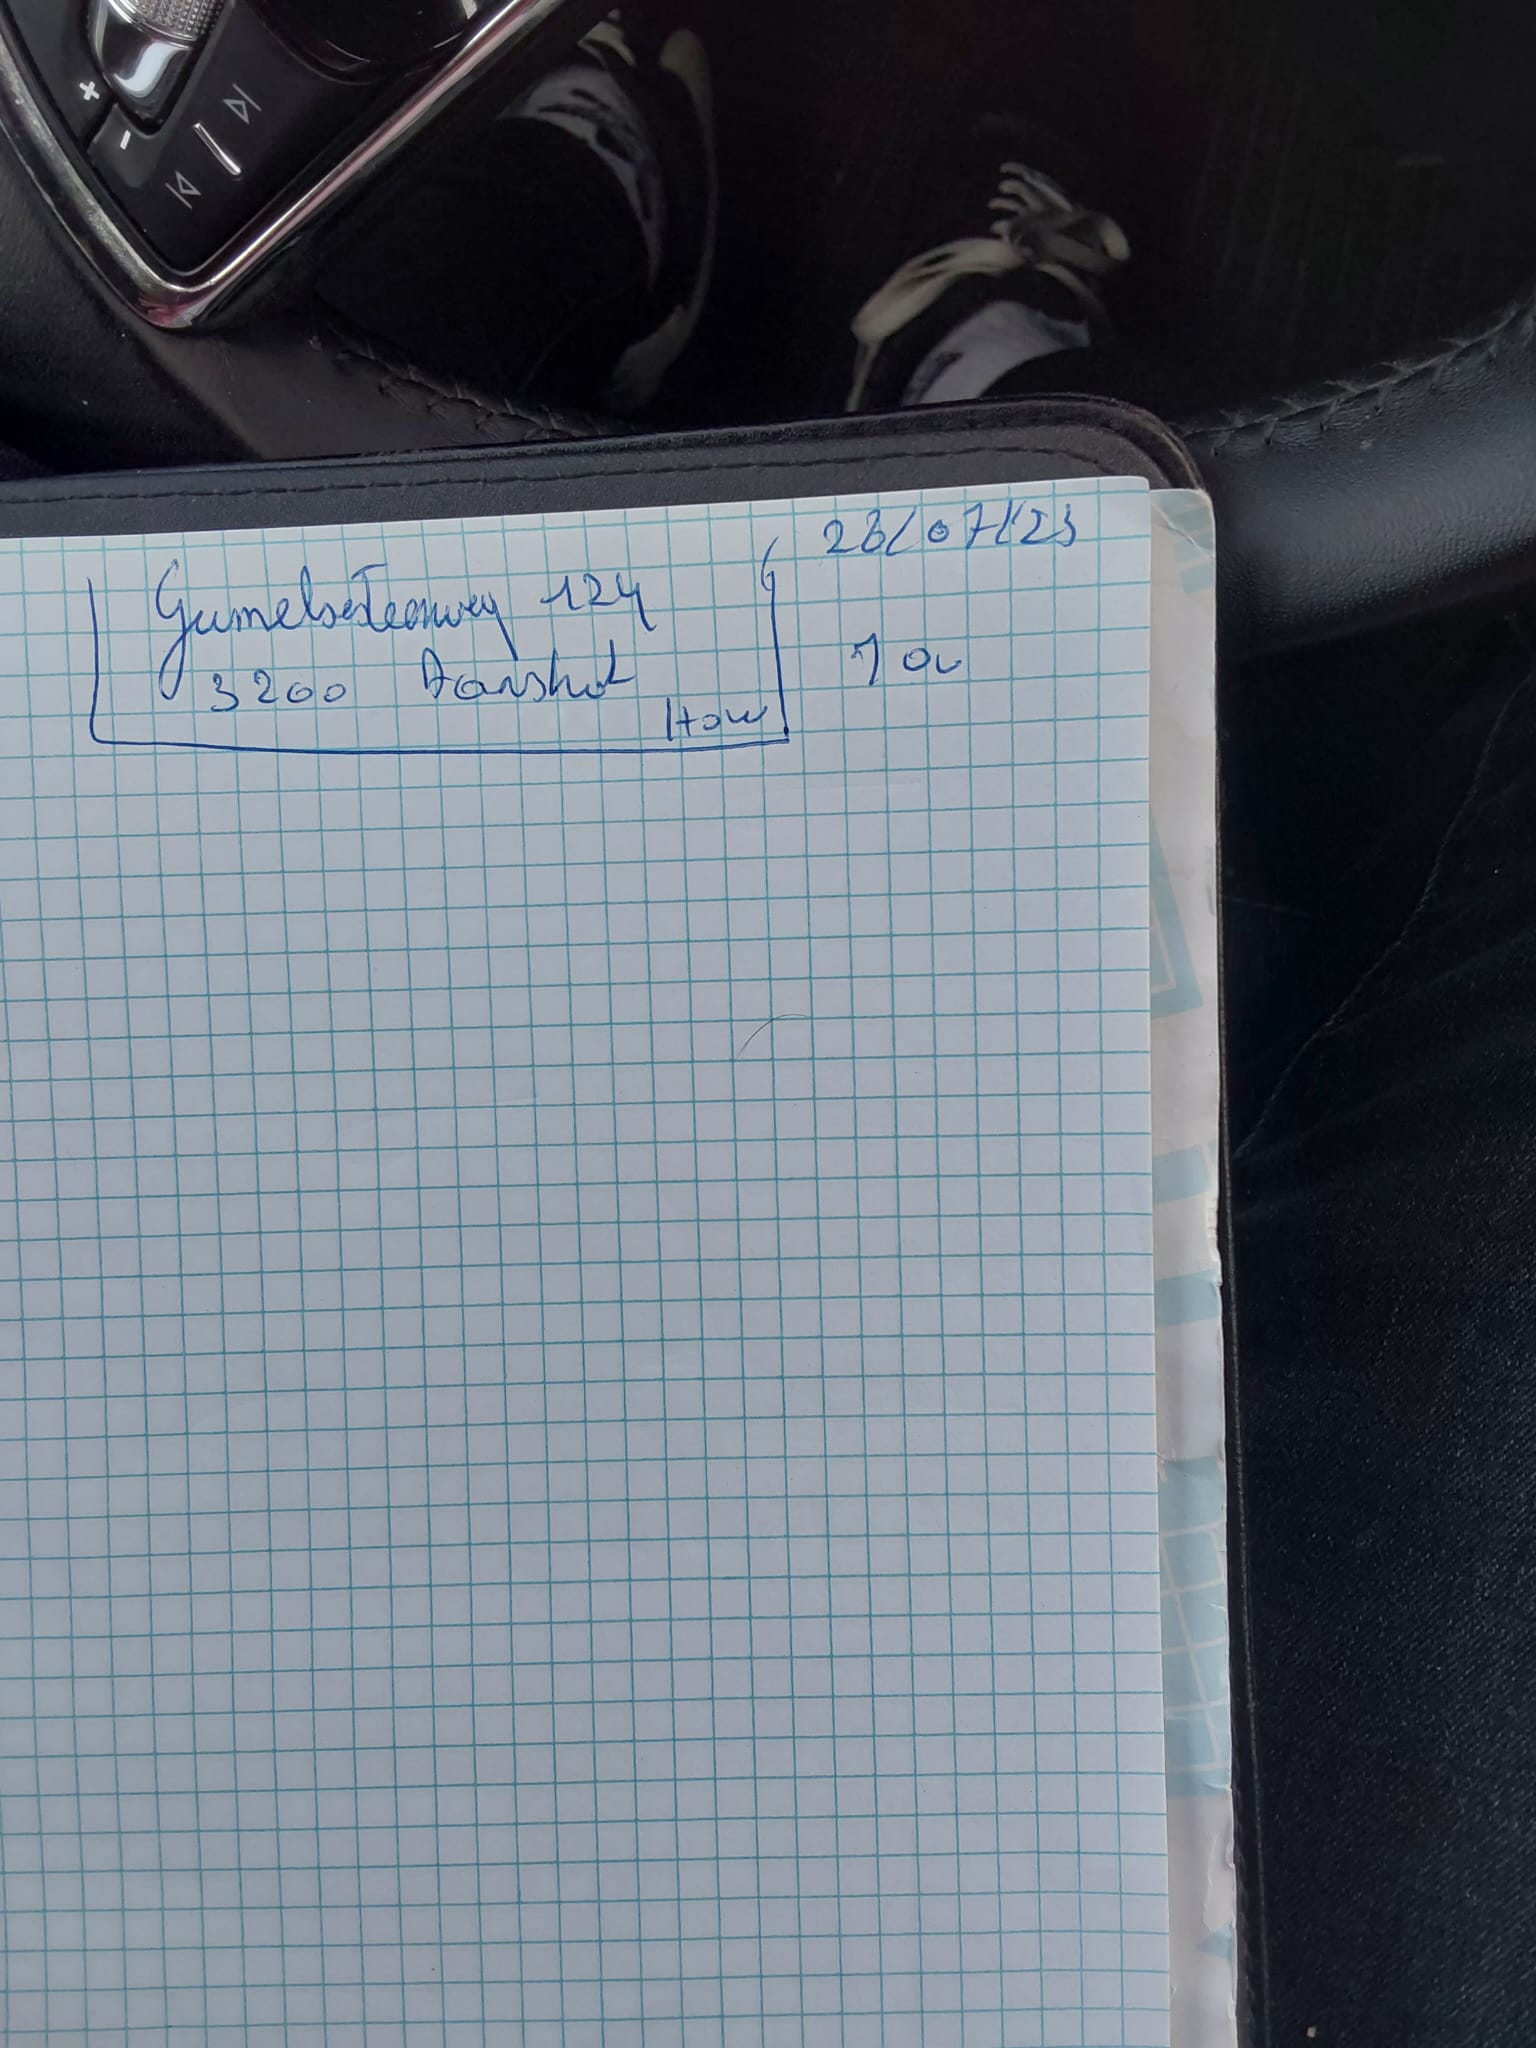 28/07/23
Gumelsesteenweg 124
3200 Aarshot
How
1 ou